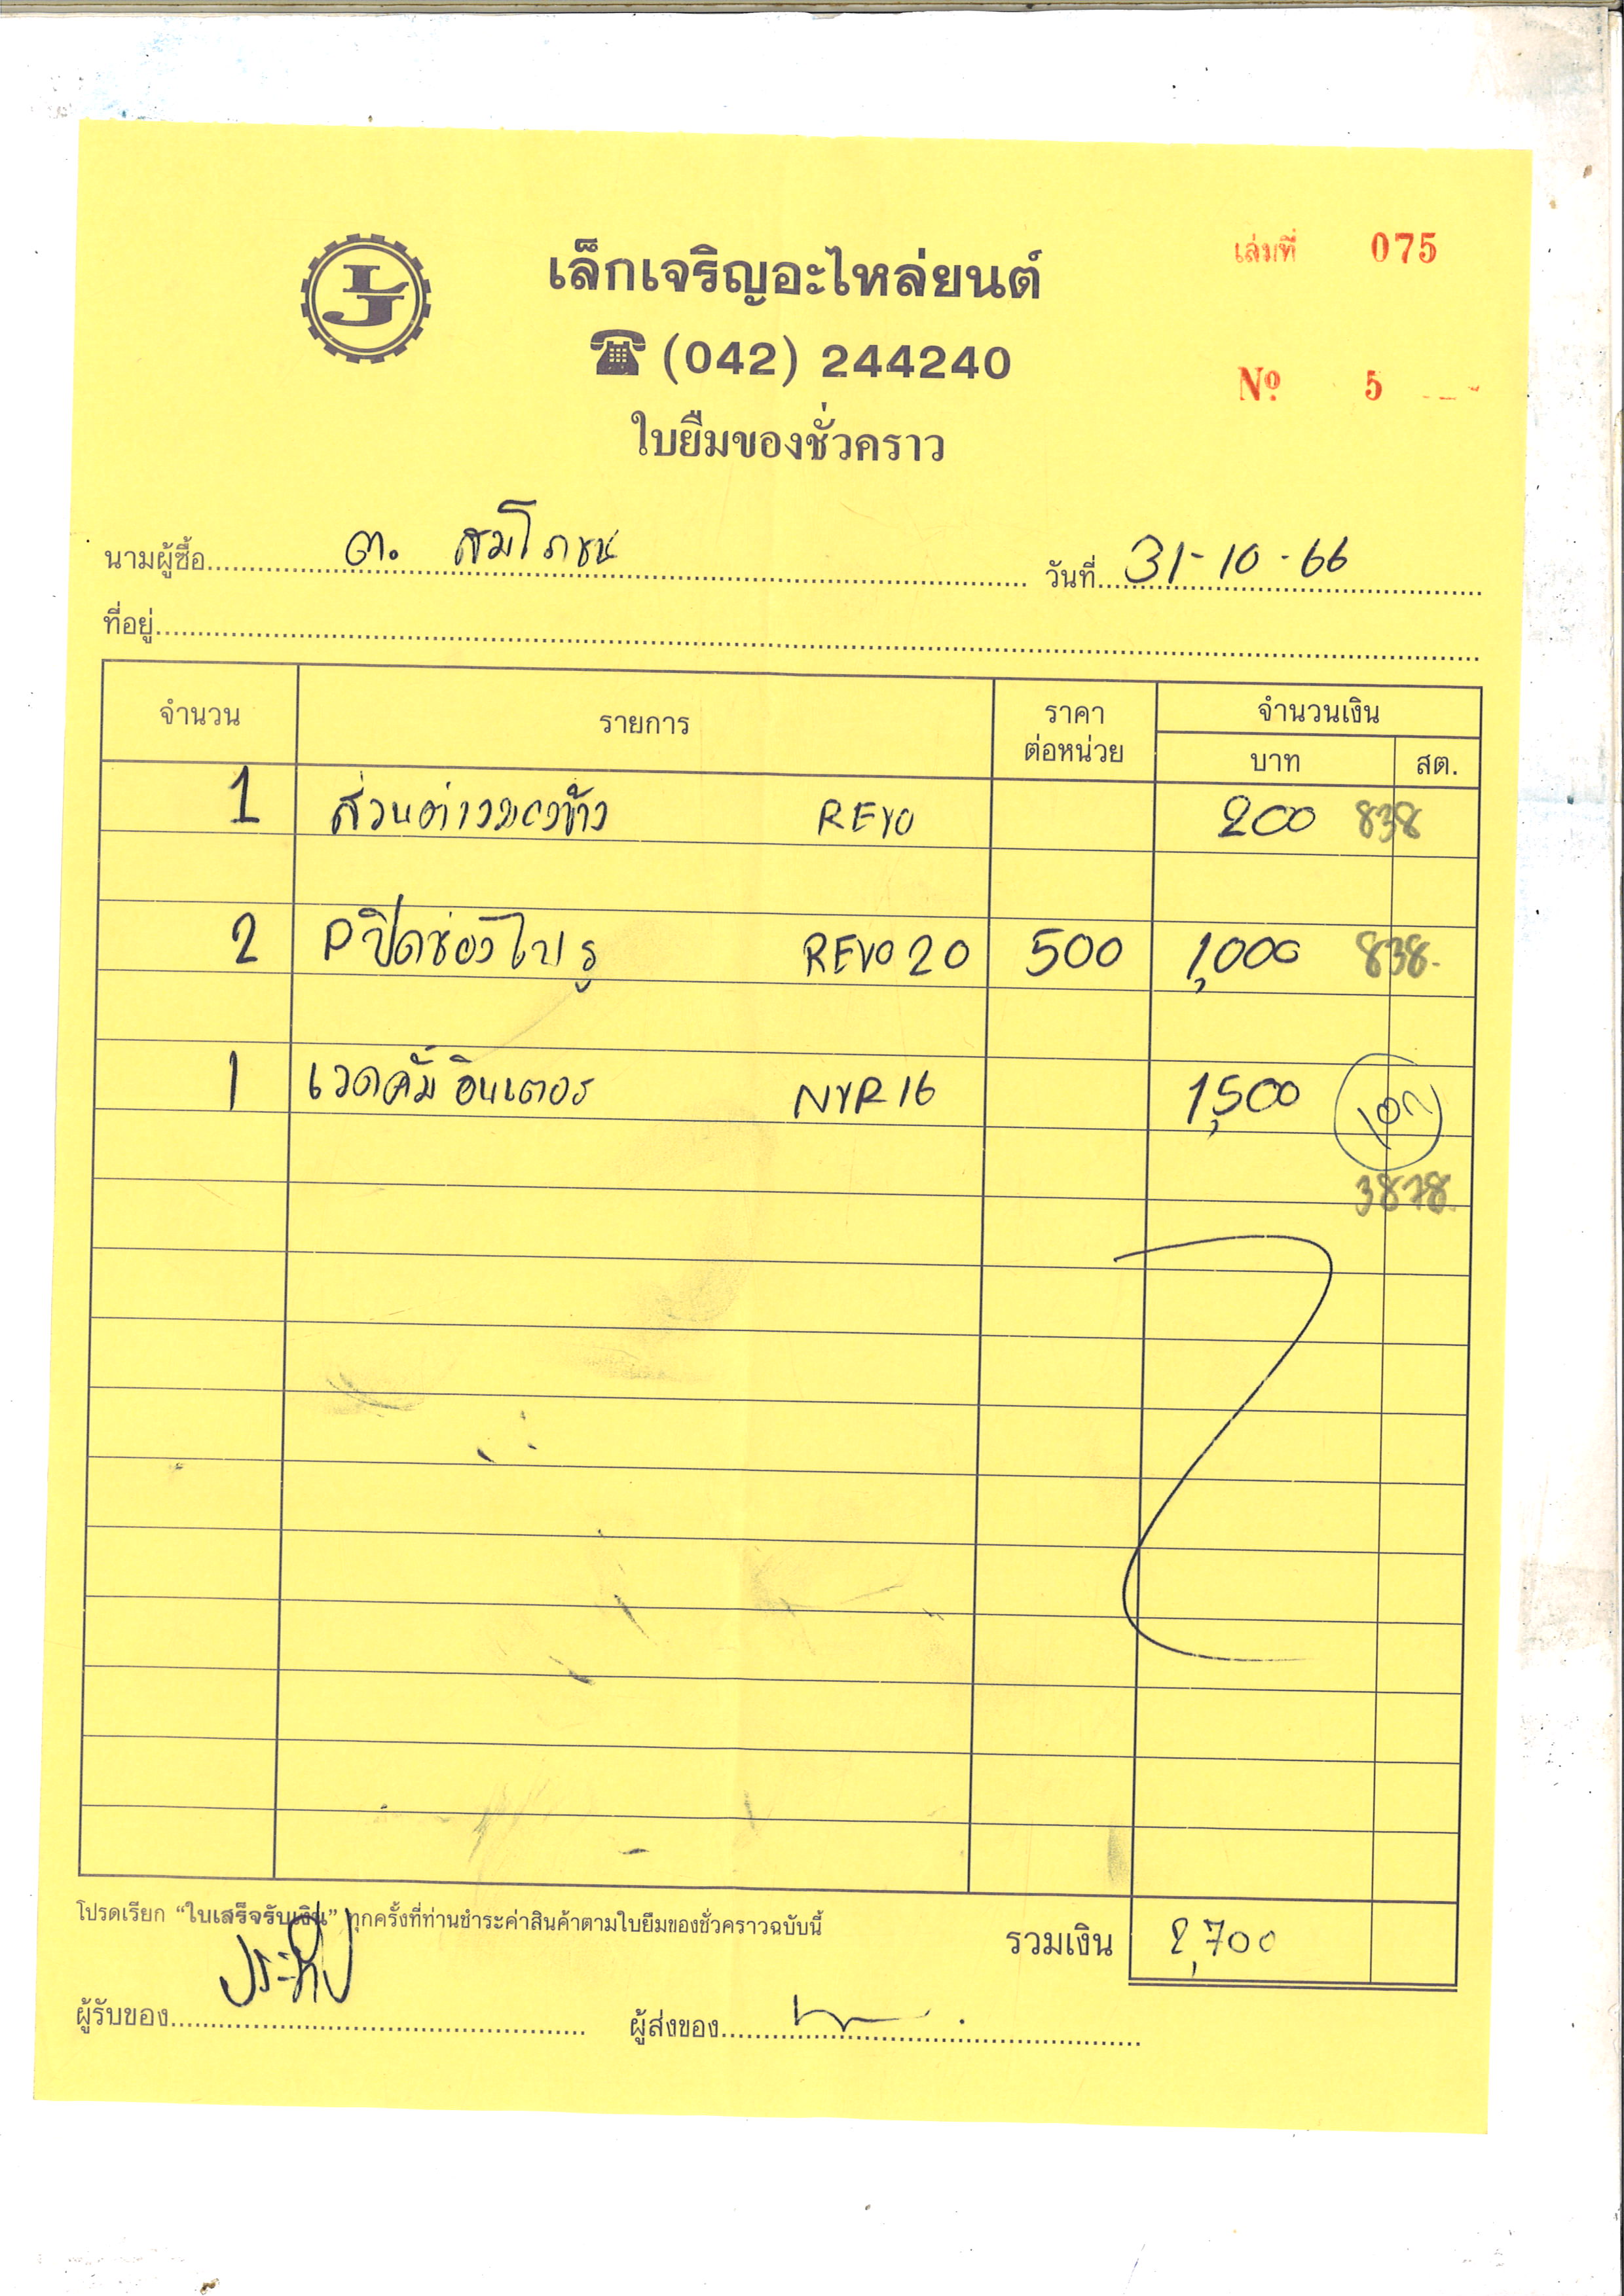 เล็กเจริญอะไหล่ยนต์
เล่มที่ 075
(042) 244240
Nº 5
ใบยืมของชั่วคราว
นามผู้ซื้อ ต. สมโภชน์ วันที่ 31-10-66
ที่อยู่
จำนวน รายการ ราคาต่อหน่วย จำนวนเงิน
บาท สต.
1 ส่วนต่าง REVO 200 838
2 P ปิดช่อง REVO 20 500 1,000 838.
1 เวดคั้ม อินเตอร์ NYR 16 1,500 เอก
3878.
โปรดเรียก “ใบเสร็จรับเงิน” ทุกครั้งที่ท่านชำระค่าสินค้าตามใบยืมของชั่วคราวฉบับนี้
รวมเงิน 2,700
ผู้รับของ ประทีป ผู้ส่งของ